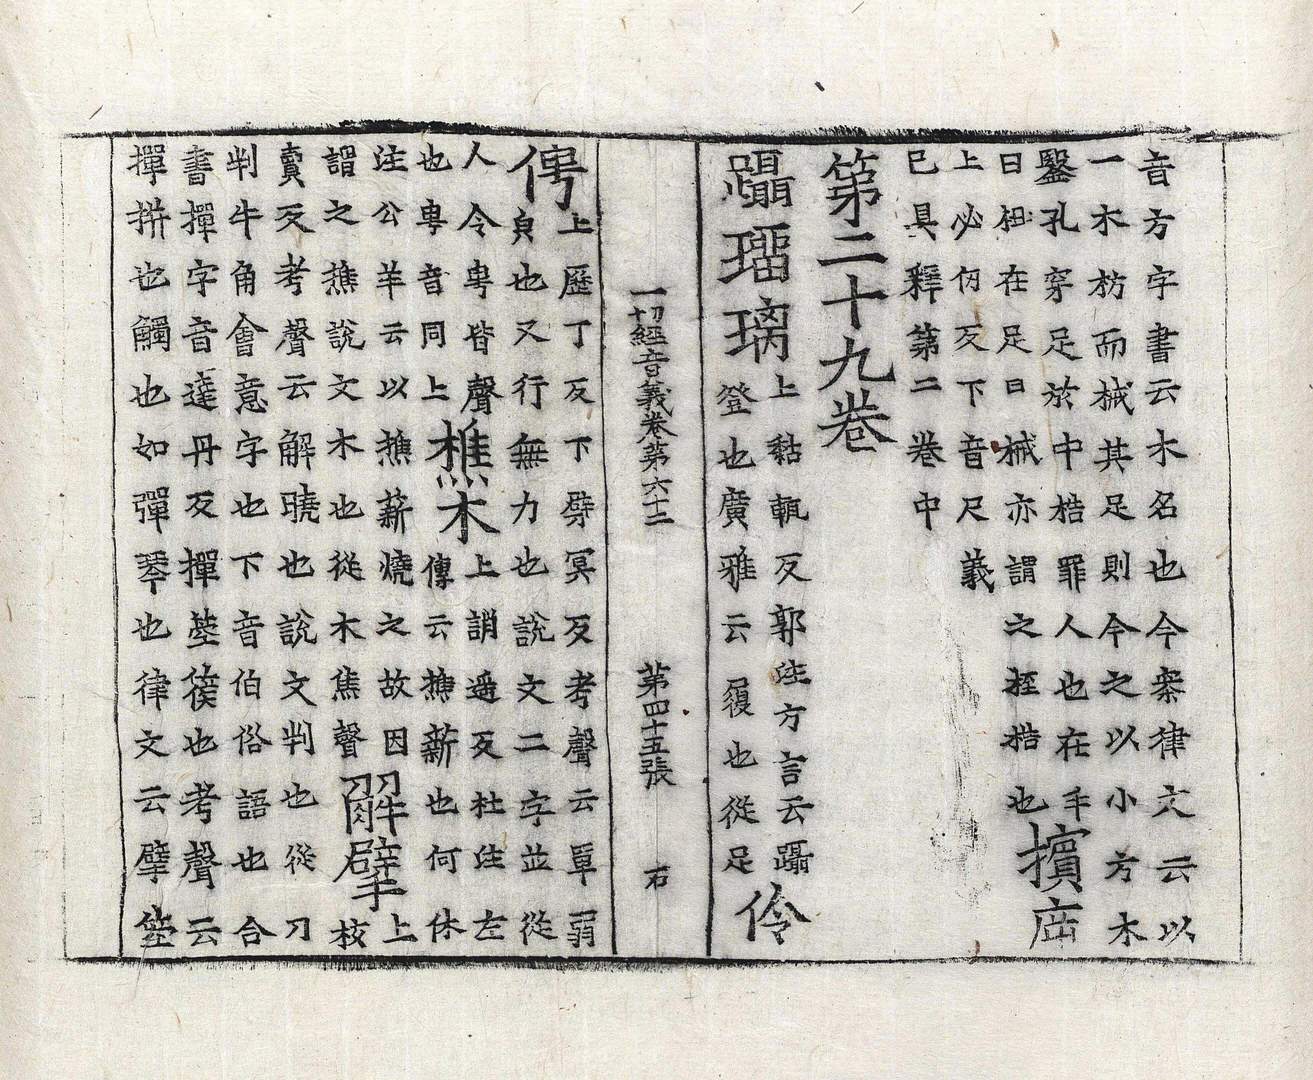 音方字書云木名也今案律文云以
一木枋而械其足則今之以小方木
鑿孔穿足於中梏罪人也在手
曰杻在足曰械亦謂之桎梏也
擯庌
上必仞反下音尺義
已具釋第二卷中
第二十九卷
躡瑠璃
上黏輒反郭注方言云躡
登也廣雅云履也從足
伶
一切經音義卷第六十二 第四十五張 右
俜
上歷丁反下劈冥反考聲云單弱
皃也又行無力也說文二字並從
人令甹皆聲
也甹音同上
樵木
上誚遥反杜注左
傳云樵薪也何休
注公羊云以樵薪燒之故因
謂之樵說文木也從木焦聲
解擘
上
核
賣反考聲云解曉也說文判也從刀
判牛角會意字也下音伯俗語也合
書撣字音達丹反撣箜篌也考聲云
撣拼也觸也如彈琴也律文云擘箜